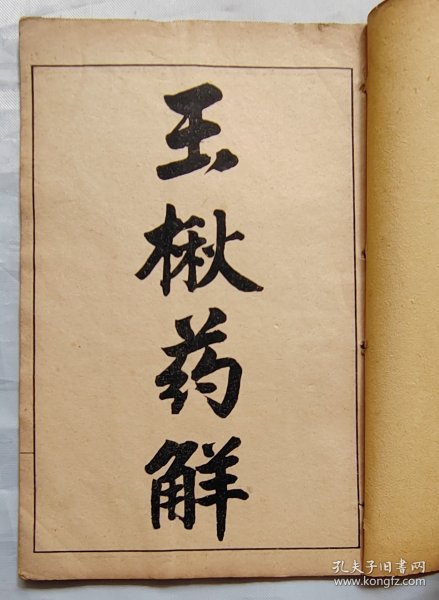 玉楸药觧
孔夫子旧书网
www.kongfz.com